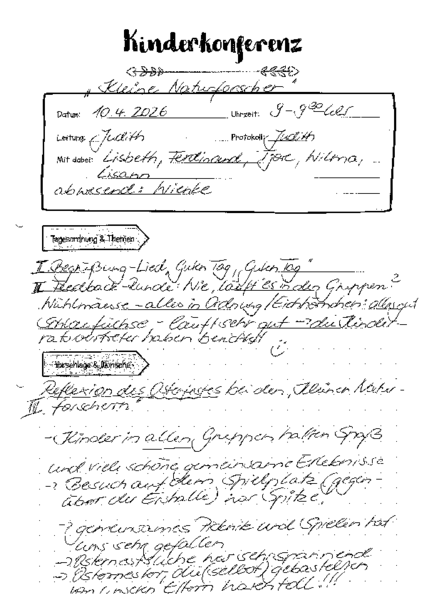 Kinderkonferenz
"Kleine Naturforscher"
Datum: 10.4.2026 Uhrzeit: 9-9³⁰ Uhr
Leitung: Judith Protokoll: Judith
Mit dabei: Lisbeth, Ferdinand, Wilma,
Lisann
abwesend: Wienke
Tagesordnung & Themen
I Begrüßung-Lied, Guten Tag, Guten Tag"
II Feedback-Runde: Wie läuft es in den Gruppen?
Wühlmäuse - alles in Ordnung / Eichhörnchen: alles gut
Schlaufüchse - läuft sehr gut → die Kinder-
ratsvertreter haben berichtet!
Vorschläge & Wünsche
III Reflexion des Osterfestes bei den "Kleinen Natur-
forschern"
→ Kinder in allen Gruppen hatten Spaß
und viele schöne gemeinsame Erlebnisse
→ Besuch auf dem Spielplatz (gegen-
über der Eishalle) war Spitze!
→ gemeinsames Picknick und Spielen hat
uns sehr gefallen
→ Osternestsuche war sehr spannend
→ Osternester, die (selbst) gebastelten
von unseren Eltern waren toll!!!